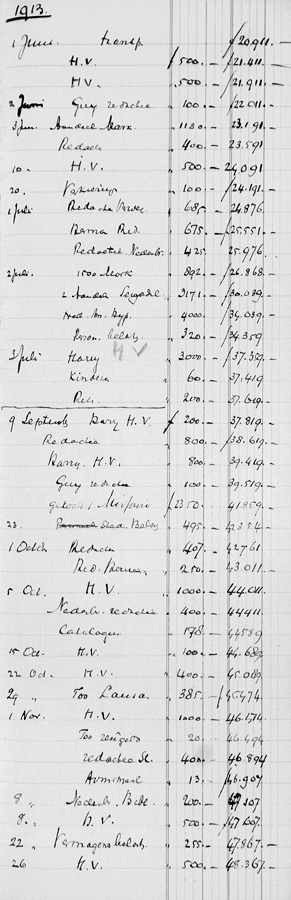 1913.
1 Juni. transp. ƒ20.911.-
H.V. ƒ500.- ƒ21.411.-
H.V. " 500.- ƒ21.911.-
2 Juni Guy redactie " 100.- ƒ22.011.-
3 Juni Mark " 1180.- ƒ23.191.-
Redactie " 400.- ƒ23.591
10 " H.V. " 500.- 24.091
20. " 100.- ƒ24.191.-
1 Juli Redactie " 685.- 24.876
Red. " 675.- ƒ25.551.-
Redactie Nederl. " 425. 25.976.-
2 Juli. 1500 Mark " 892.- ƒ26.868.-
2 " 3171.- ƒ30.039.-
Ned. " 4000.- ƒ34.039.-
Person. belast. " 320.- ƒ34.359
3 Juli Harry H V " 3000.- ƒ37.359.-
Kindern " 60.- ƒ37.419
" 200.- ƒ37.619.-
9 Septemb Harry H.V. ƒ200.- ƒ37.819.-
Redactie " 800.- ƒ38.619.-
Harry. H.V. " 800.- 39.419.-
Guy redactie " 100.- ƒ39.519.-
ƒ2350.- 41.859.-
23. Belas. " 495.- 42354.-
1 Octob Redactie " 407.- 42761
Red. " 250.- 43.011.-
5 Oct. H.V. " 1000.- 44.011.
Nederl. redactie " 400.- 44411.-
Catalogus " 178.- 44589
15 Oct. H.V. " 100.- 44.689.
22 Oct. H.V. " 400.- 45.089.
29 " Too Laura " 385.- ƒ45474
1 Nov. H.V. " 1000.- 46.474.-
Too " 20.- 46.494
redactie " 400.- 46.894
" 13.- ƒ46.907
8 " Nederl. " 200.- 47.107
8. " H.V. " 500.- 47.607.
22 " Vermogensbelast. " 255.- 47.867.-
26 H.V. " 500.- 48.367.-